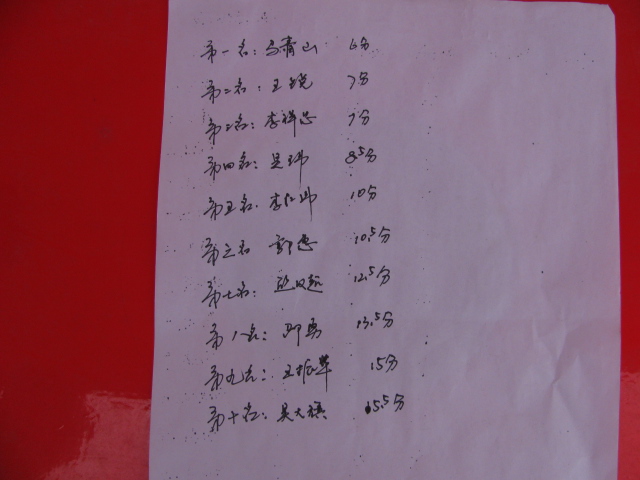 第一名：马青山 6分
第二名：王锐 7分
第三名：李祥忠 7分
第四名：吴玮 8.5分
第五名：李红彬 10分
第六名 郭忠 10.5分
第七名： 12.5分
第八名： 勇 13.5分
第九名：王振华 15分
第十名：吴大祺 15.5分